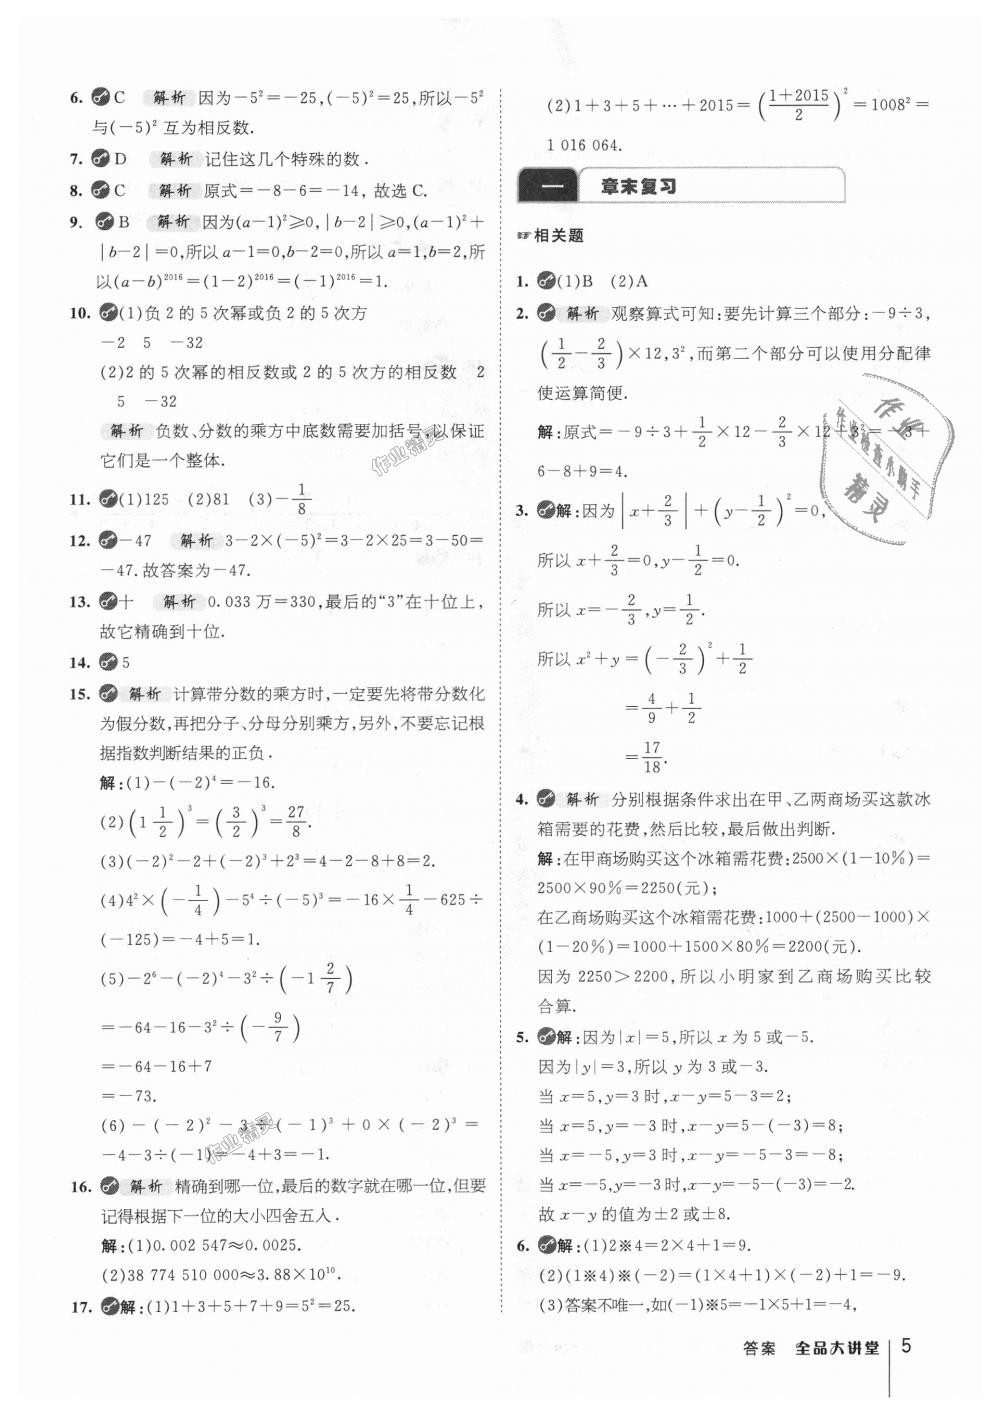 6. C 解析 因为-5²=-25,(-5)²=25,所以-5²
与(-5)² 互为相反数.
7. D 解析 记住这几个特殊的数.
8. C 解析 原式=-8-6=-14, 故选C.
9. B 解析 因为(a-1)²≥0,|b-2|≥0,(a-1)²+
|b-2|=0,所以a-1=0,b-2=0,所以a=1,b=2,所
以(a-b)²⁰¹⁶=(1-2)²⁰¹⁶=(-1)²⁰¹⁶=1.
10. (1)负2的5次幂或负2的5次方
-2 5 -32
(2)2的5次幂的相反数或2的5次方的相反数 2
5 -32
解析 负数、分数的乘方中底数需要加括号,以保证
它们是一个整体.
11. (1)125 (2)81 (3)-1/8
12. -47 解析 3-2×(-5)²=3-2×25=3-50=
-47.故答案为-47.
13. 十 解析 0.033万=330,最后的“3”在十位上,
故它精确到十位.
14. 5
15. 解析 计算带分数的乘方时,一定要先将带分数化
为假分数,再把分子、分母分别乘方,另外,不要忘记根
据指数判断结果的正负.
解:(1)-(-2)⁴=-16.
(2)(1 1/2)³=(3/2)³=27/8.
(3)(-2)²-2+(-2)³+2³=4-2-8+8=2.
(4)4²×(-1/4)-5⁴÷(-5)³=-16×1/4-625÷
(-125)=-4+5=1.
(5)-2⁶-(-2)⁴-3²÷(-1 2/7)
=-64-16-3²÷(-9/7)
=-64-16+7
=-73.
(6)-(-2)²-3÷(-1)³+0×(-2)³=
-4-3÷(-1)=-4+3=-1.
16. 解析 精确到哪一位,最后的数字就在哪一位,但要
记得根据下一位的大小四舍五入.
解:(1)0.002 547≈0.0025.
(2)38 774 510 000≈3.88×10¹⁰.
17. 解:(1)1+3+5+7+9=5²=25.
(2)1+3+5+…+2015=((1+2015)/2)²=1008²=
1 016 064.
一 章末复习
☞相关题
1. (1)B (2)A
2. 解析 观察算式可知:要先计算三个部分:-9÷3,
(1/2-2/3)×12,3²,而第二个部分可以使用分配律
使运算简便.
解:原式=-9÷3+1/2×12-2/3×12+3²=-3+
6-8+9=4.
3. 解:因为|x+2/3|+(y-1/2)²=0,
所以x+2/3=0,y-1/2=0.
所以x=-2/3,y=1/2.
所以x²+y=(-2/3)²+1/2
=4/9+1/2
=17/18.
4. 解析 分别根据条件求出在甲、乙两商场买这款冰
箱需要的花费,然后比较,最后做出判断.
解:在甲商场购买这个冰箱需花费:2500×(1-10%)=
2500×90%=2250(元);
在乙商场购买这个冰箱需花费:1000+(2500-1000)×
(1-20%)=1000+1500×80%=2200(元).
因为2250>2200,所以小明家到乙商场购买比较
合算.
5. 解:因为|x|=5,所以x为5或-5.
因为|y|=3,所以y为3或-3.
当x=5,y=3时,x-y=5-3=2;
当x=5,y=-3时,x-y=5-(-3)=8;
当x=-5,y=3时,x-y=-5-3=-8;
当x=-5,y=-3时,x-y=-5-(-3)=-2.
故x-y的值为±2或±8.
6. 解:(1)2※4=2×4+1=9.
(2)(1※4)※(-2)=(1×4+1)×(-2)+1=-9.
(3)答案不唯一,如(-1)※5=-1×5+1=-4,
答案 全品大讲堂 5
作业精灵
作业精灵
作业
作业检查小助手
精灵